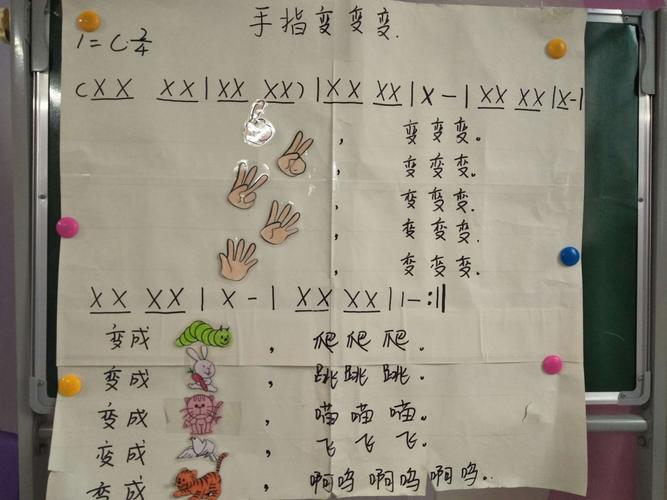 手指变变变.
1=C 2/4
(XX XX|XX XX)|XX XX|X-|XX XX|X-|
, 变变变。
, 变变变。
, 变变变.
, 变变变.
, 变变变。
XX XX|X-|XX XX|1-:||
变成 , 爬爬爬。
变成 , 跳跳跳。
变成 , 喵喵喵。
变成 , 飞飞飞。
变成 , 啊呜啊呜啊呜.